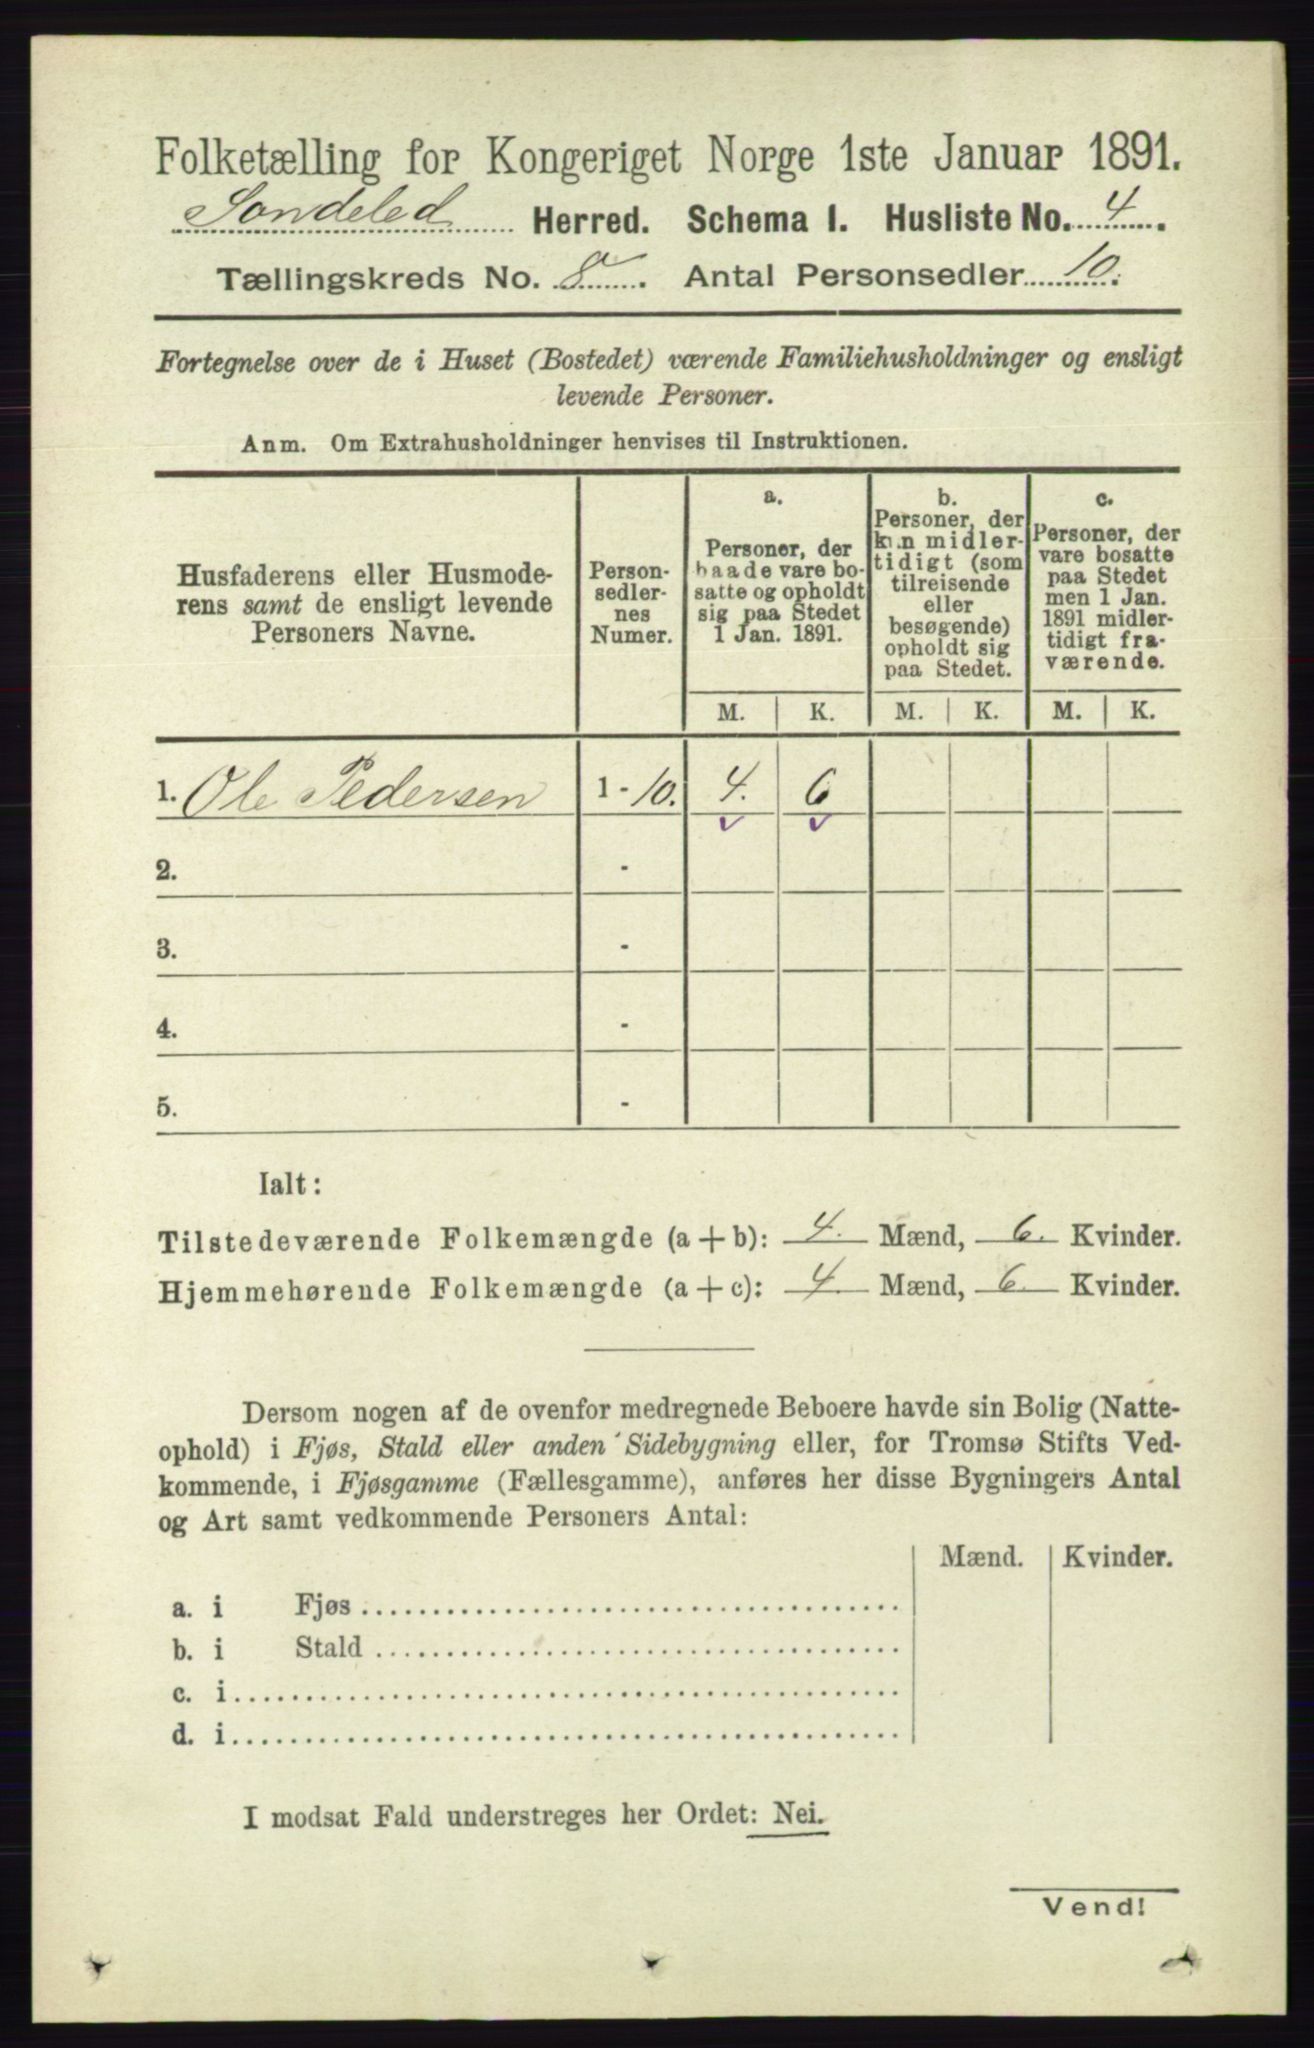 Folketælling for Kongeriget Norge 1ste Januar 1891.
Søndeled Herred. Schema 1. Husliste No. 4.
Tællingskreds No. 8. Antal Personsedler 10.
Fortegnelse over de i Huset (Bostedet) værende Familiehusholdninger og ensligt
levende Personer.
Anm. Om Extrahusholdninger henvises til Instruktionen.
Husfaderens eller Husmode-
rens samt de ensligt levende
Personers Navne.
Person-
sedler-
nes
Numer.
a.
Personer, der
baade vare bo-
satte og opholdt
sig paa Stedet
1 Jan. 1891.
b.
Personer, der
kun midler-
tidigt (som
tilreisende
eller
besøgende)
opholdt sig
paa Stedet.
c.
Personer, der
vare bosatte
paa Stedet
men 1 Jan.
1891 midler-
tidigt fra-
værende.
M. K. M. K. M. K.
1. Ole Pedersen 1 - 10. 4. 6
2. -
3. -
4. -
5. -
Ialt:
Tilstedeværende Folkemængde (a + b): 4. Mænd, 6. Kvinder.
Hjemmehørende Folkemængde (a + c): 4. Mænd, 6. Kvinder.
Dersom nogen af de ovenfor medregnede Beboere havde sin Bolig (Natte-
ophold) i Fjøs, Stald eller anden Sidebygning eller, for Tromsø Stifts Ved-
kommende, i Fjøsgamme (Fællesgamme), anføres her disse Bygningers Antal
og Art samt vedkommende Personers Antal:
Mænd. Kvinder.
a. i Fjøs
b. i Stald
c. i
d. i
I modsat Fald understreges her Ordet: Nei.
Vend!